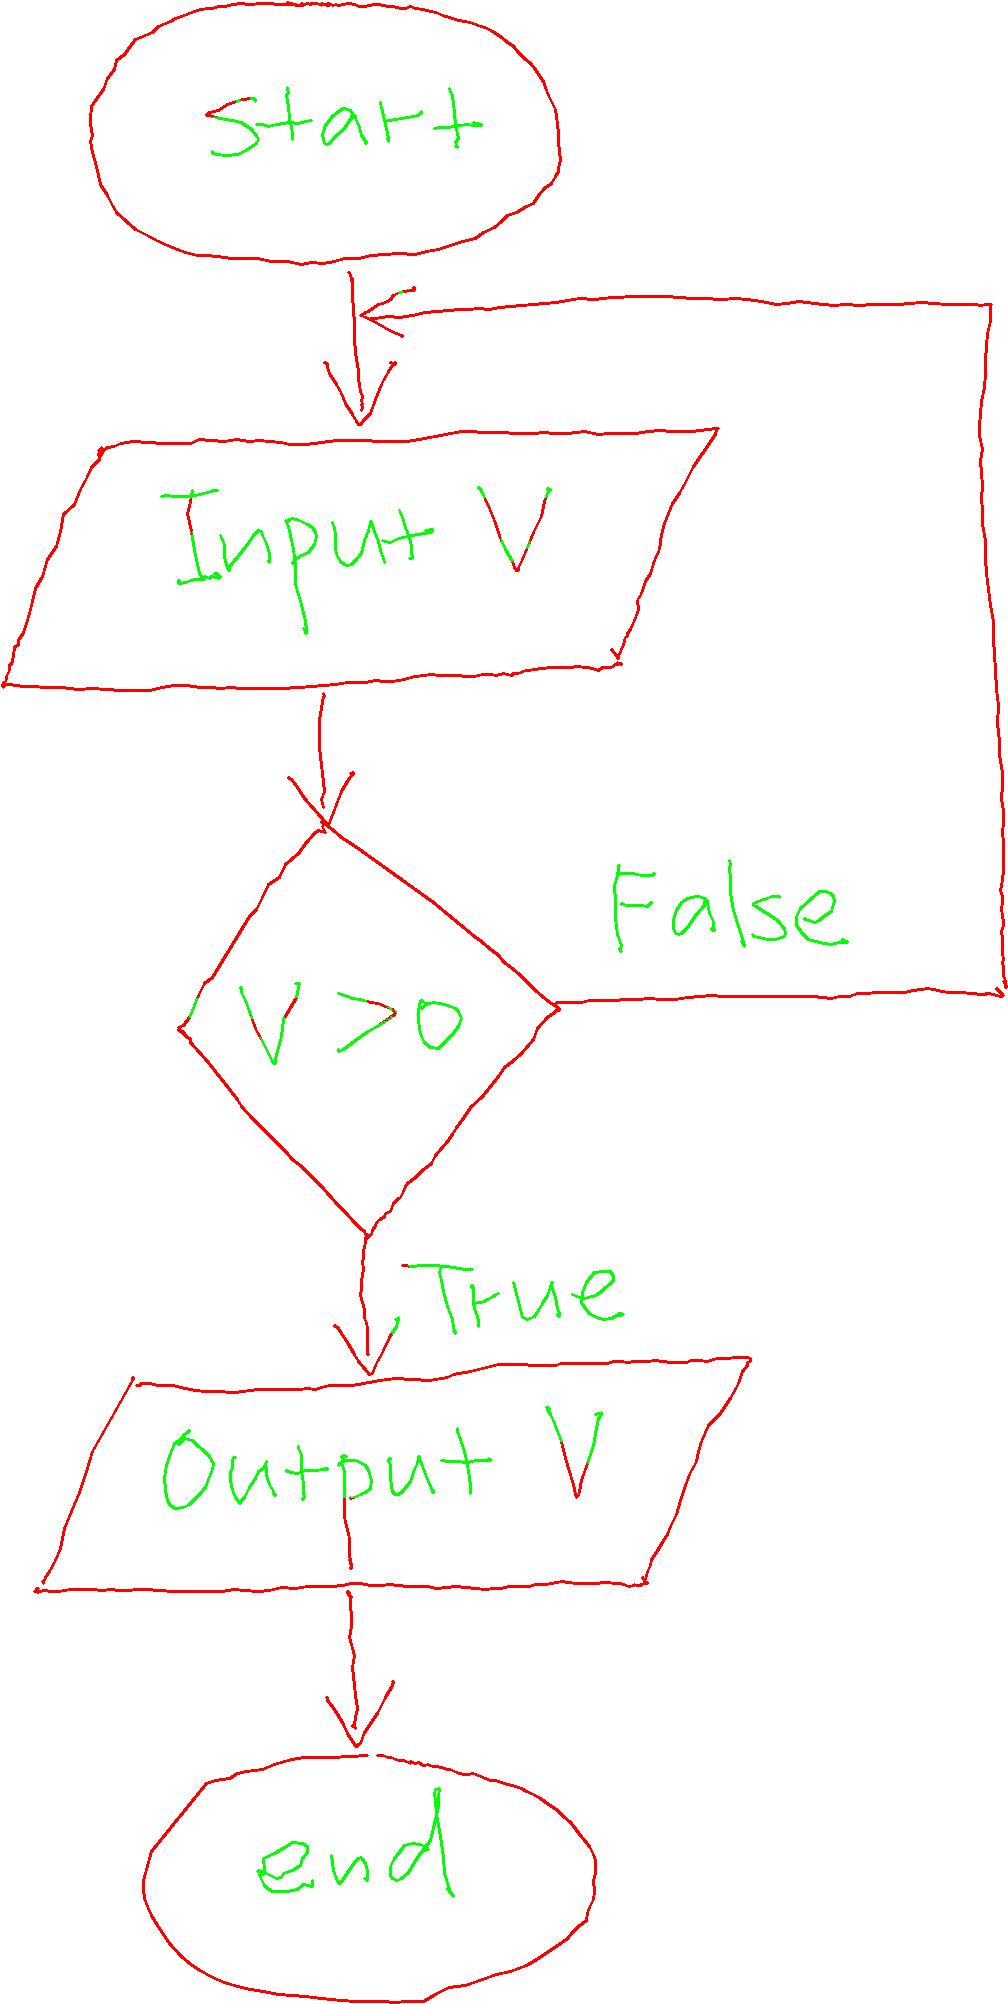 Start
Input V
False
V >0
True
Output V
end